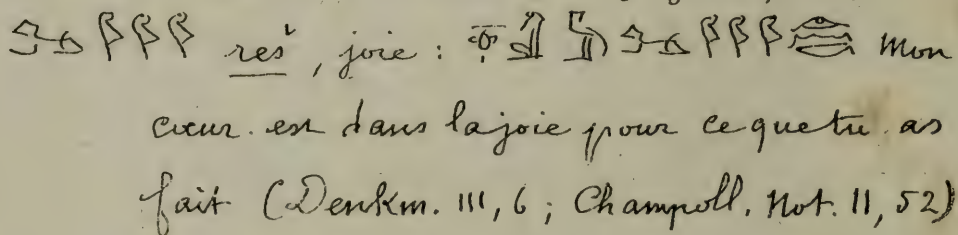 reš, joie : Mon
cœur est dans la joie pour ce que tu as
fait (Denkm. III, 6 ; Champoll. Not. II, 52)